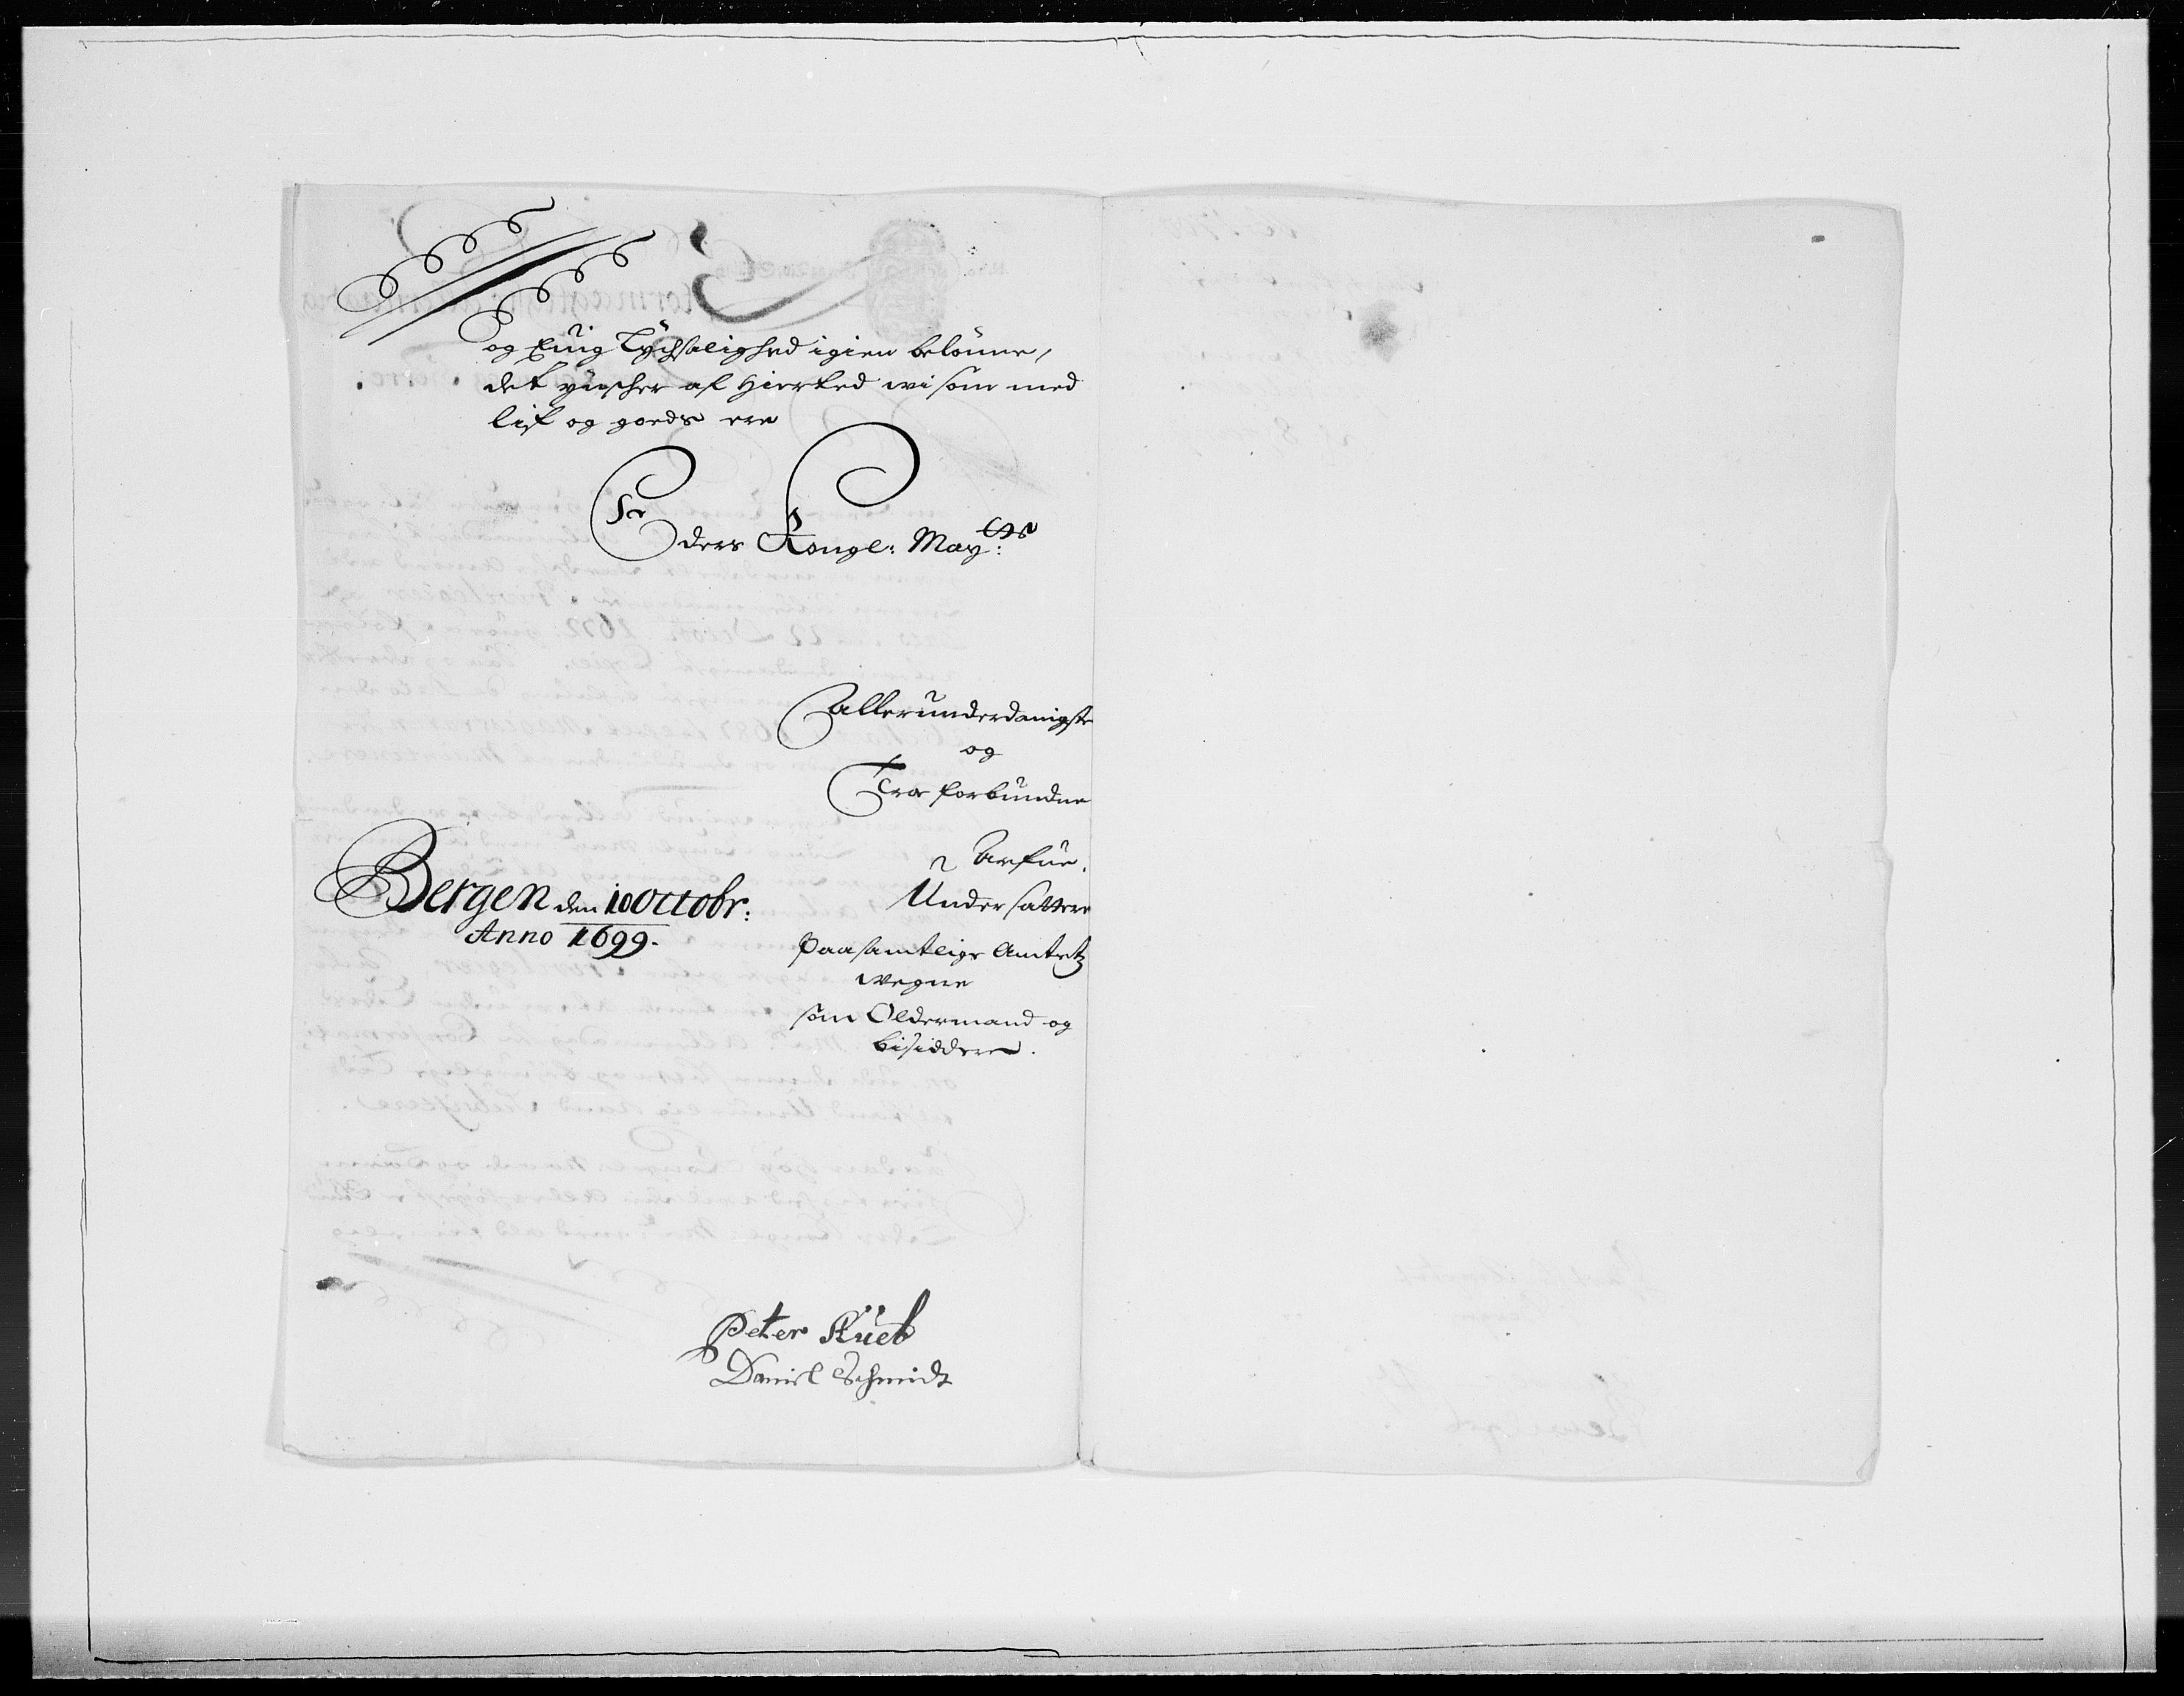 og Euig Lychsalighed igien belönne,
det ynscher af Hierted wi som med
lif og goeds ere
Eders Kongl: May:tts
allerunderdanigste
og
Troe forbundne
Arfue.
Undersattere
Paa samtlige Amtetz
wegne
som Oldermand og
bisiddere.
Bergen den 10 Octobr:
Anno 1699.
Peter Küeb
Daniel Schmidt